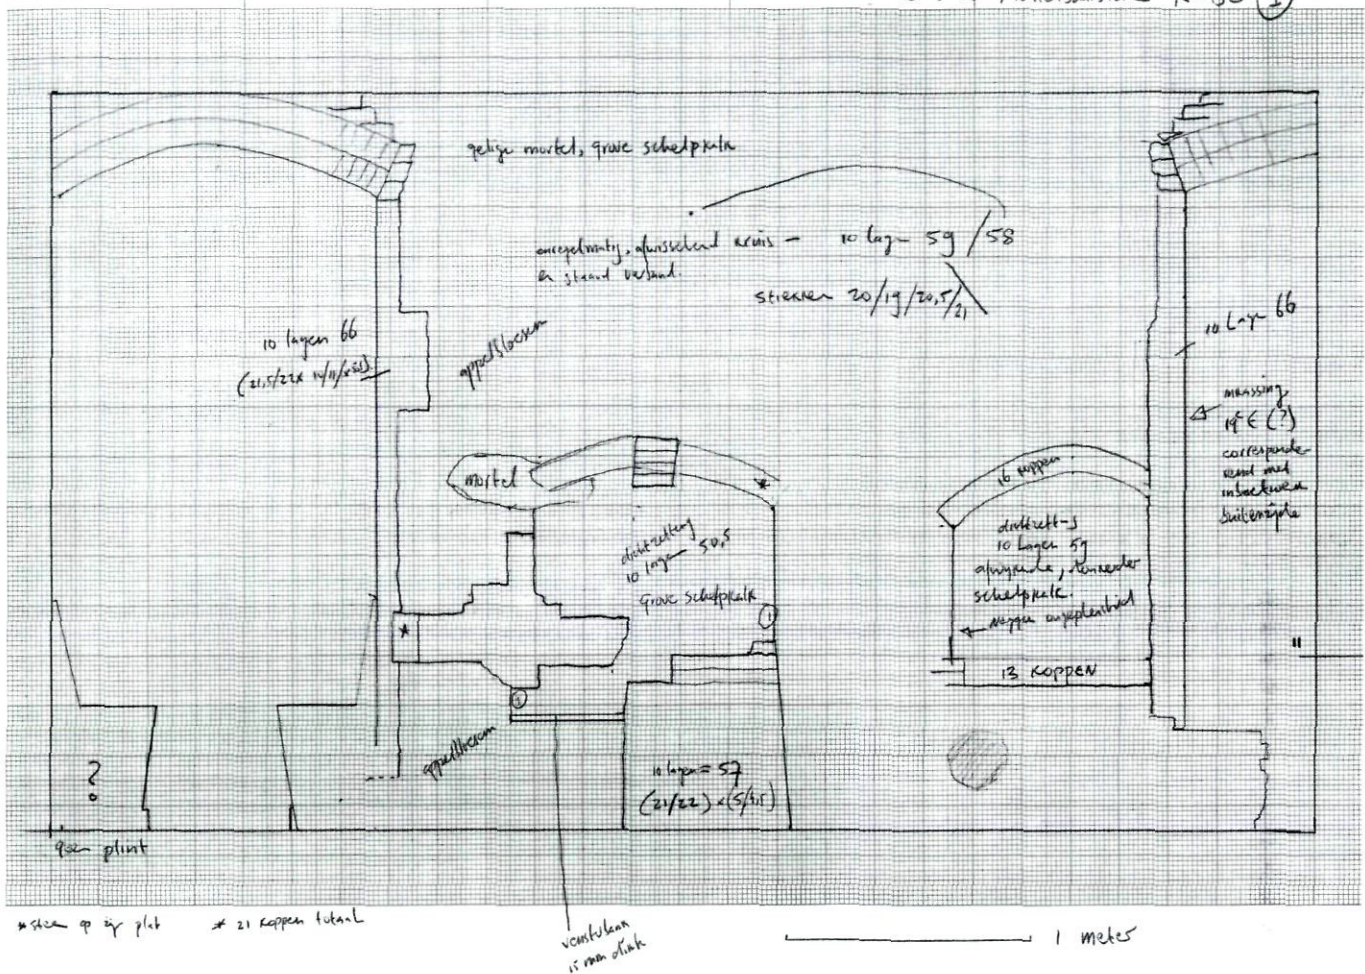 ①
gelige mortel, grove schelpkalk
onregelmatig, afwisselend kruis - 10 lagen 59 / 58
en staand verband.
strekken 20/19/20,5/21
10 lagen 66
(21,5/22x
appelbloesem
10 lagen 66
inkassing
19e E (?)
corresponde
rend met
buitenzijde
mortel
*
dichtzetting
10 lagen 50,5
grove schelpkalk
①
16 koppen
dichtzett-g
10 lagen 59
afwijkende, donkerder
schelpkalk.
neggen ongepleisterd
13 KOPPEN
"
*
①
appelbloesem
?
10 lagen = 57
(21/22) x (5/4,5)
geen plint
* steen op zijn plat * 21 koppen totaal
vensterbank
15 mm dik
1 meter